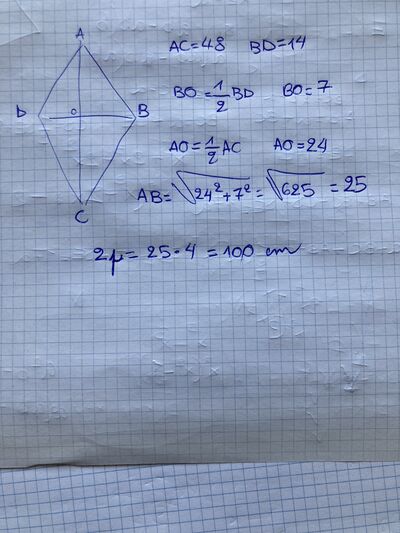 A
AC=48 BD=14
D O B
BO=1/2 BD BO=7
AO=1/2 AC AO=24
AB=√24²+7² = √625 = 25
C
2p= 25·4 = 100 cm